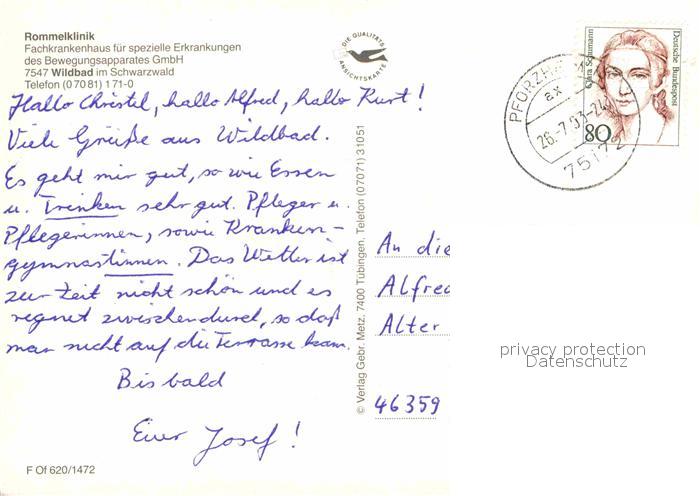 Rommelklinik
Fachkrankenhaus für spezielle Erkrankungen
des Bewegungsapparates GmbH
7547 Wildbad im Schwarzwald
Telefon (0 70 81) 171-0
Hallo Christel, hallo Alfred, hallo Kurt!
Viele Grüße aus Wildbad.
Es geht mir gut, so wie Essen
u. Trinken sehr gut. Pfleger u.
Pflegerinnen, sowie Kranken-
gymnastinnen. Das Wetter ist
zur Zeit nicht schön und es
regnet zwischendurch, so daß
man nicht auf die Terrasse kann.
Bis bald
Euer Josef!
F Of 620/1472
DIE QUALITÄTS
ANSICHTSKARTE
© Verlag Gebr. Metz, 7400 Tübingen, Telefon (07071) 31051
Clara Schumann
Deutsche Bundespost
80
PFORZHEIM
ax
26.-7.93-24
75172
An die
Alfred
Alter
46359
privacy protection
Datenschutz